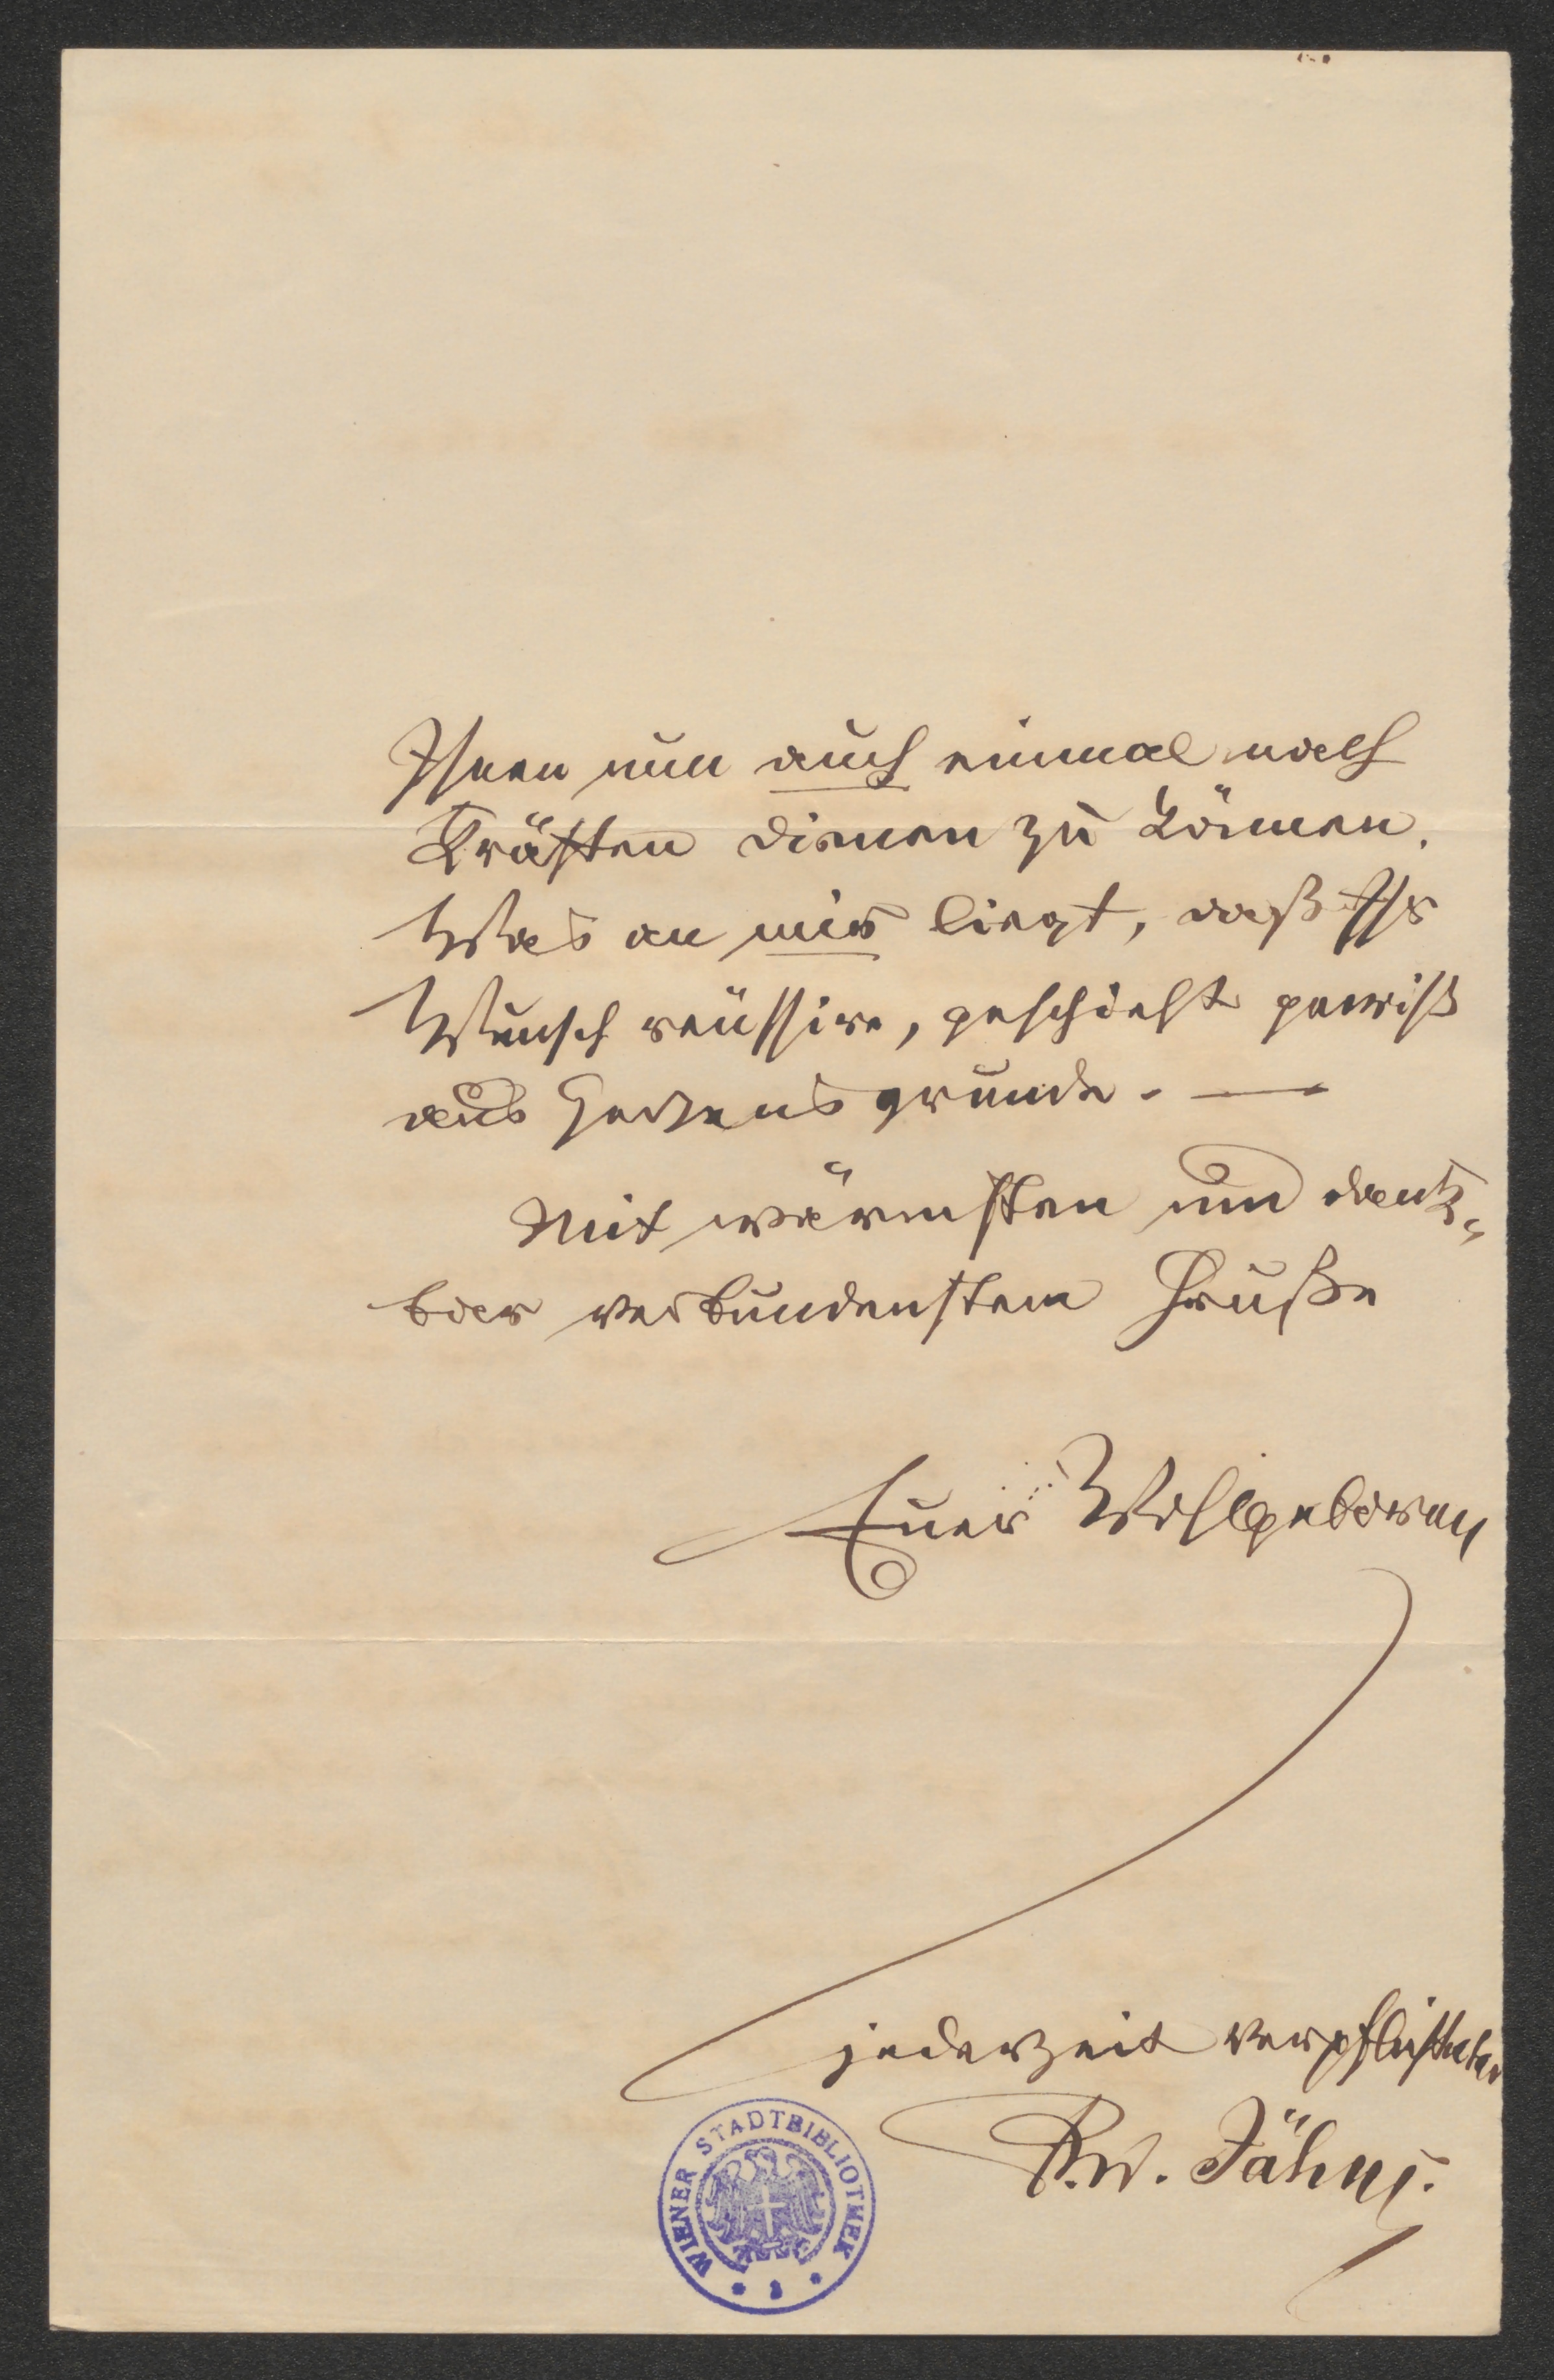 Ihnen nun auch einmal nach
Kräften dienen zu können.
Was an mir liegt, daß Ihr
Wunsch reüssire, geschieht gewiß
aus Herzensgrunde. —
Mit wärmstem und dank-
bar verbundenstem Gruße
Euer Wohlgeboren
jederzeit verpflichteter
F.W. Jähns.
WIENER STADTBIBLIOTHEK